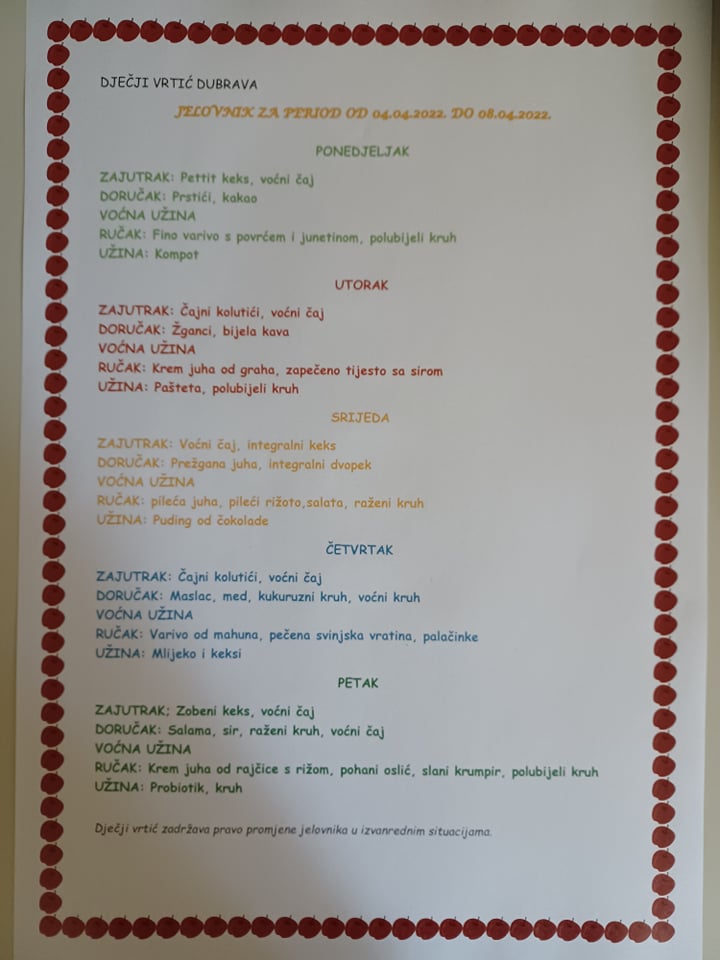 DJEČJI VRTIĆ DUBRAVA
JELOVNIK ZA PERIOD OD 04.04.2022. DO 08.04.2022.
PONEDJELJAK
ZAJUTRAK: Pettit keks, voćni čaj
DORUČAK: Prstići, kakao
VOĆNA UŽINA
RUČAK: Fino varivo s povrćem i junetinom, polubijeli kruh
UŽINA: Kompot
UTORAK
ZAJUTRAK: Čajni kolutići, voćni čaj
DORUČAK: Žganci, bijela kava
VOĆNA UŽINA
RUČAK: Krem juha od graha, zapečeno tijesto sa sirom
UŽINA: Pašteta, polubijeli kruh
SRIJEDA
ZAJUTRAK: Voćni čaj, integralni keks
DORUČAK: Prežgana juha, integralni dvopek
VOĆNA UŽINA
RUČAK: pileća juha, pileći rižoto,salata, raženi kruh
UŽINA: Puding od čokolade
ČETVRTAK
ZAJUTRAK: Čajni kolutići, voćni čaj
DORUČAK: Maslac, med, kukuruzni kruh, voćni kruh
VOĆNA UŽINA
RUČAK: Varivo od mahuna, pečena svinjska vratina, palačinke
UŽINA: Mlijeko i keksi
PETAK
ZAJUTRAK; Zobeni keks, voćni čaj
DORUČAK: Salama, sir, raženi kruh, voćni čaj
VOĆNA UŽINA
RUČAK: Krem juha od rajčice s rižom, pohani oslić, slani krumpir, polubijeli kruh
UŽINA: Probiotik, kruh
Dječji vrtić zadržava pravo promjene jelovnika u izvanrednim situacijama.